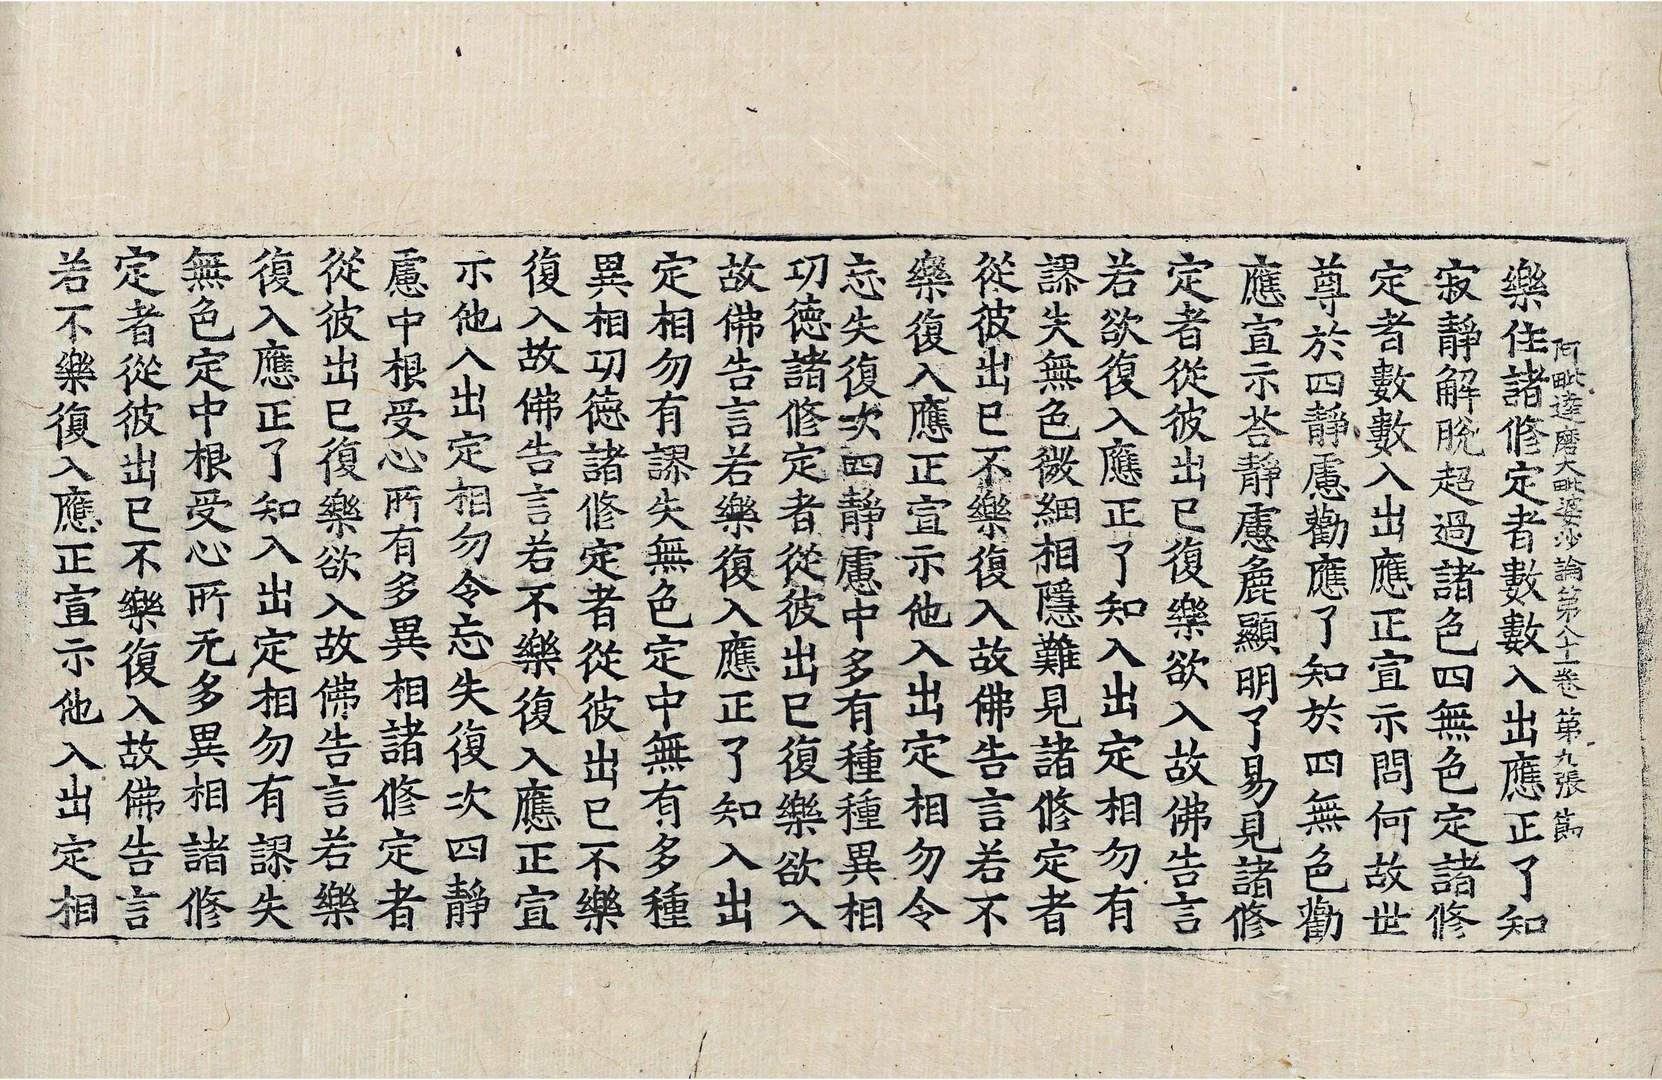 阿毗達磨大毗婆沙論第八十一卷 第九張 篩
樂住諸修定者數數入出應正了知
寂靜解脫超過諸色四無色定諸修
定者數數入出應正宣示問何故世
尊於四靜慮勸應了知於四無色勸
應宣示荅靜慮麁顯明了易見諸修
定者從彼出已復樂欲入故佛告言
若欲復入應正了知入出定相勿有
謬失無色微細相隱難見諸修定者
從彼出已不樂復入故佛告言若不
樂復入應正宣示他入出定相勿令
忘失復次四靜慮中多有種種異相
功德諸修定者從彼出已復樂欲入
故佛告言若樂復入應正了知入出
定相勿有謬失無色定中無有多種
異相功德諸修定者從彼出已不樂
復入故佛告言若不樂復入應正宣
示他入出定相勿令忘失復次四靜
慮中根受心所有多異相諸修定者
從彼出已復樂欲入故佛告言若樂
復入應正了知入出定相勿有謬失
無色定中根受心所无多異相諸修
定者從彼出已不樂復入故佛告言
若不樂復入應正宣示他入出定相